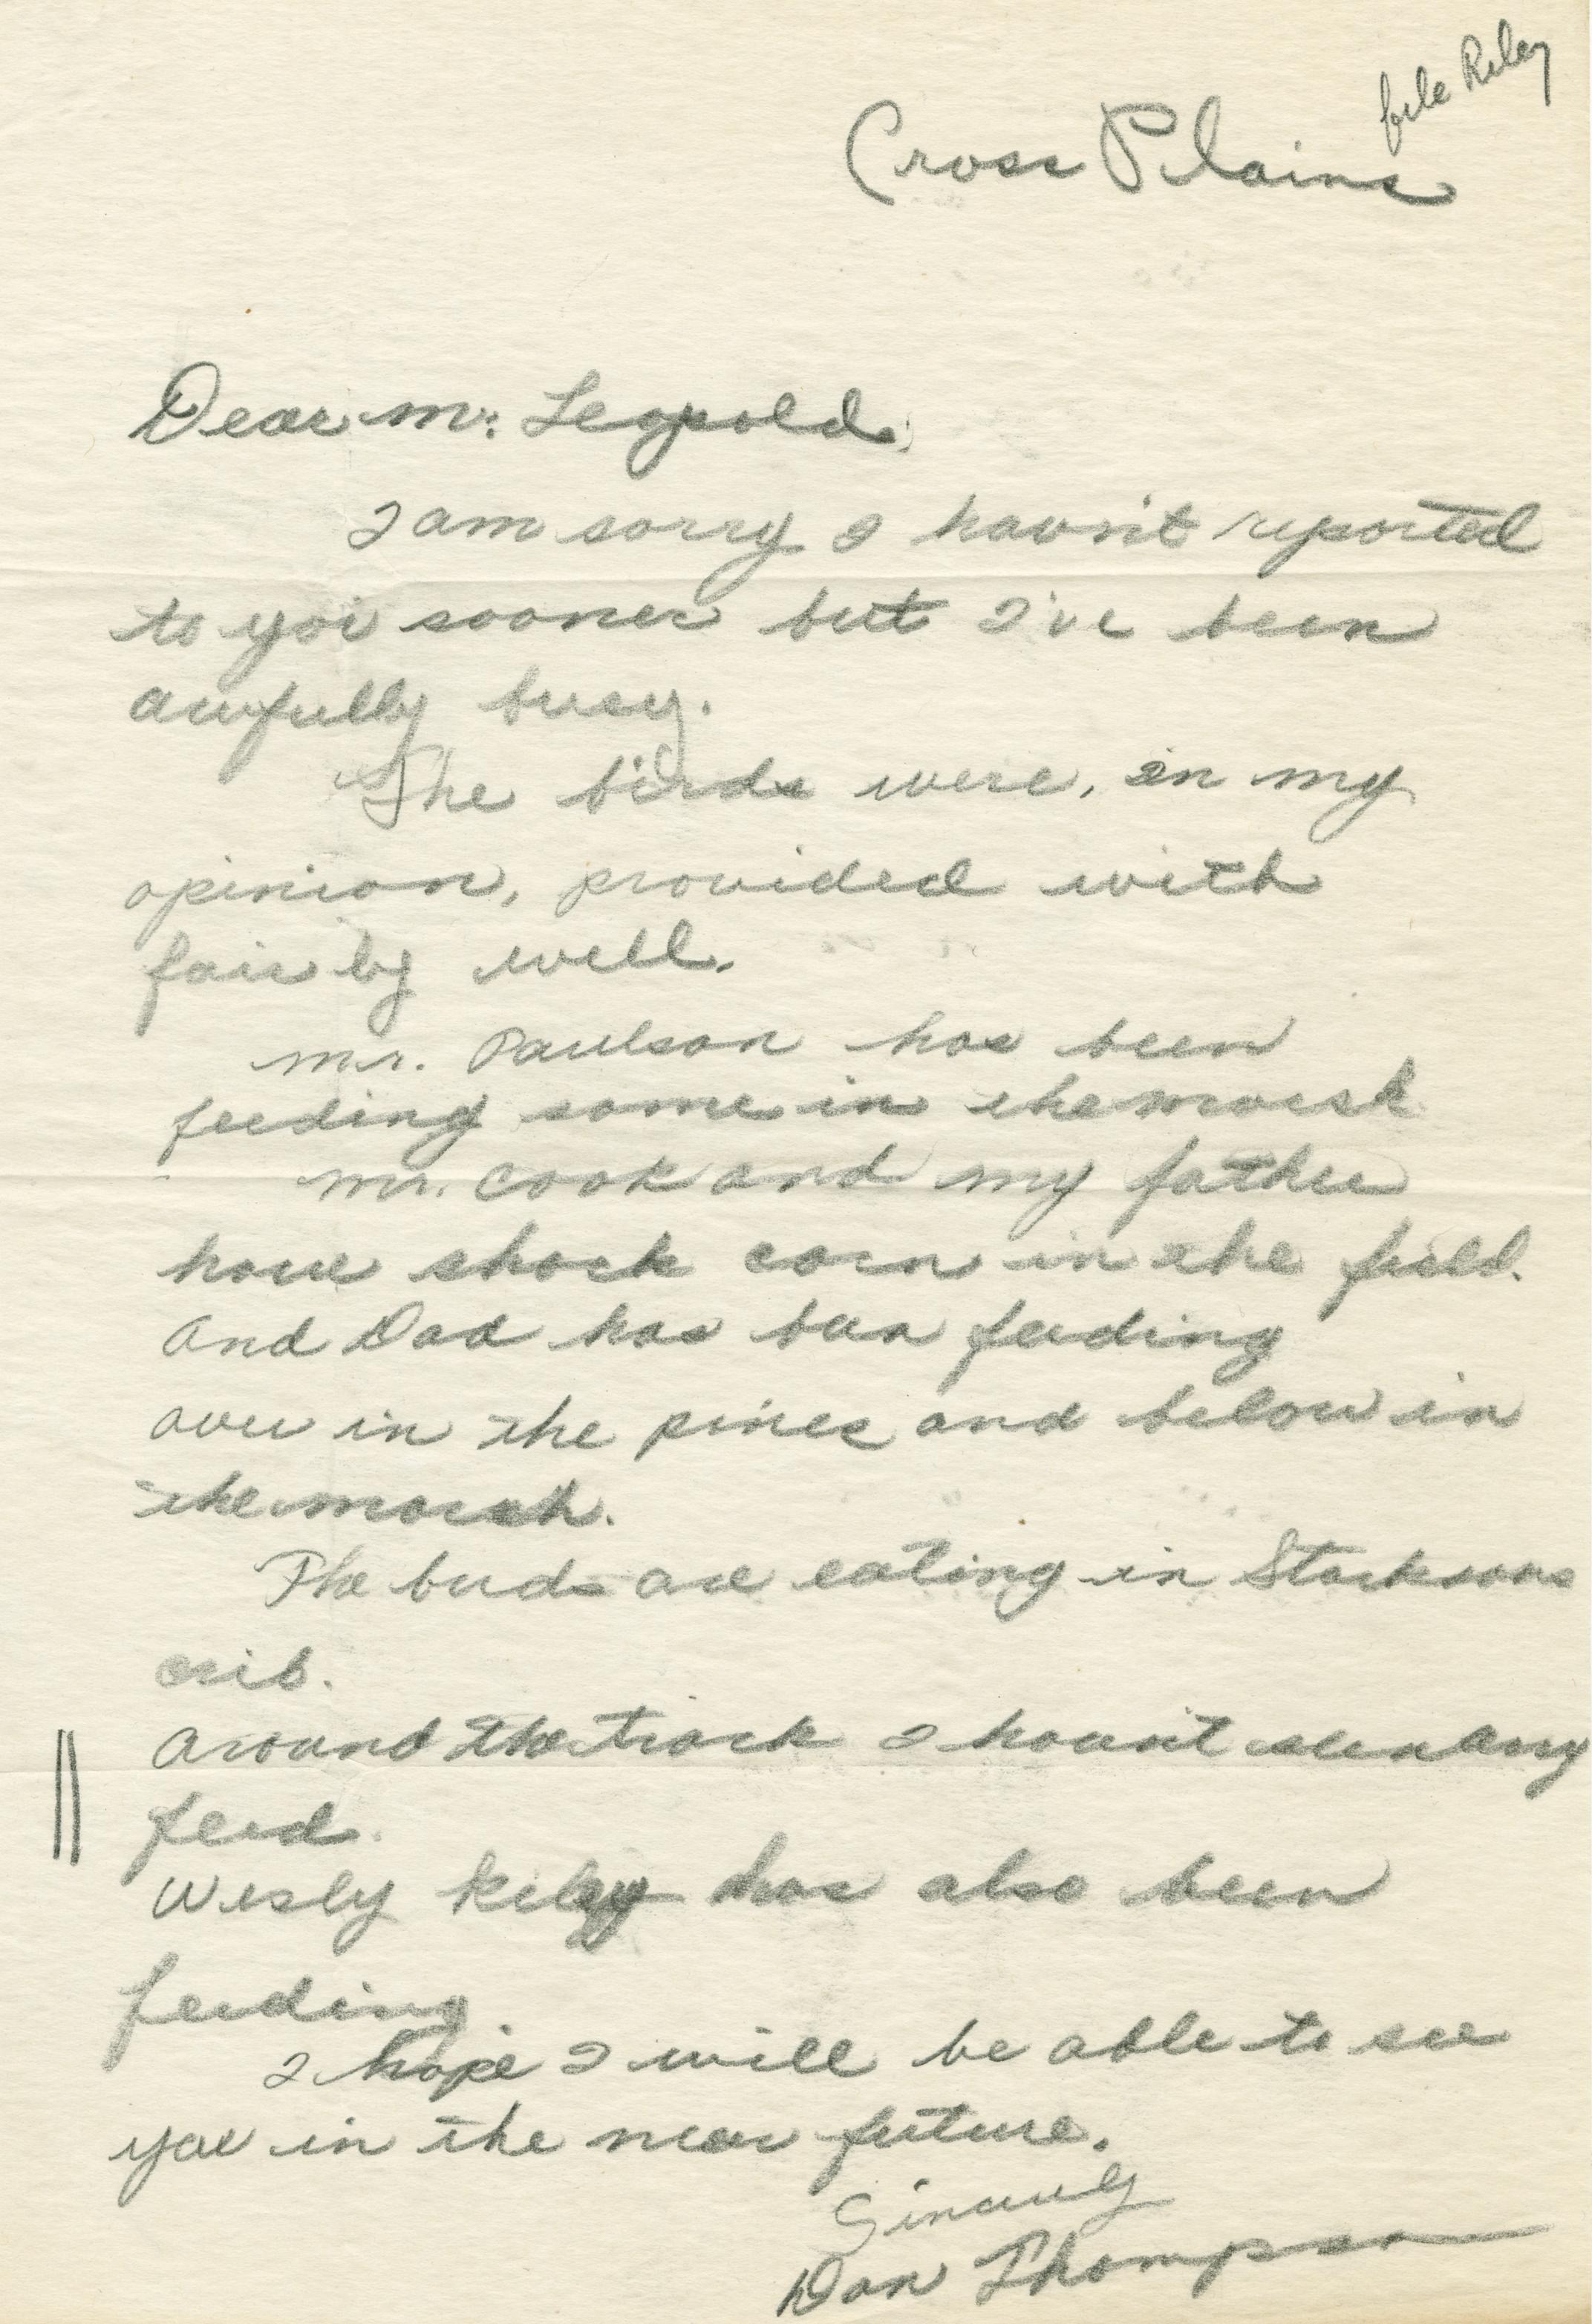 file Riley
Cross Plains
Dear Mr. Leopold,
I am sorry I havn't reported
to you sooner but I've been
awfully busy.
The birds were, in my
opinion, provided with
fairly well.
Mr. Paulson has been
feeding some in the marsh
Mr. Cook and my father
have shock corn in the field.
And Dad has been feeding
over in the pines and below in
the marsh.
The birds are eating in
crib.
Around the track I havn't seen any
feed.
Wesly has also been
feeding.
I hope I will be able to see
you in the near future.
Sincerely
Don Thompson